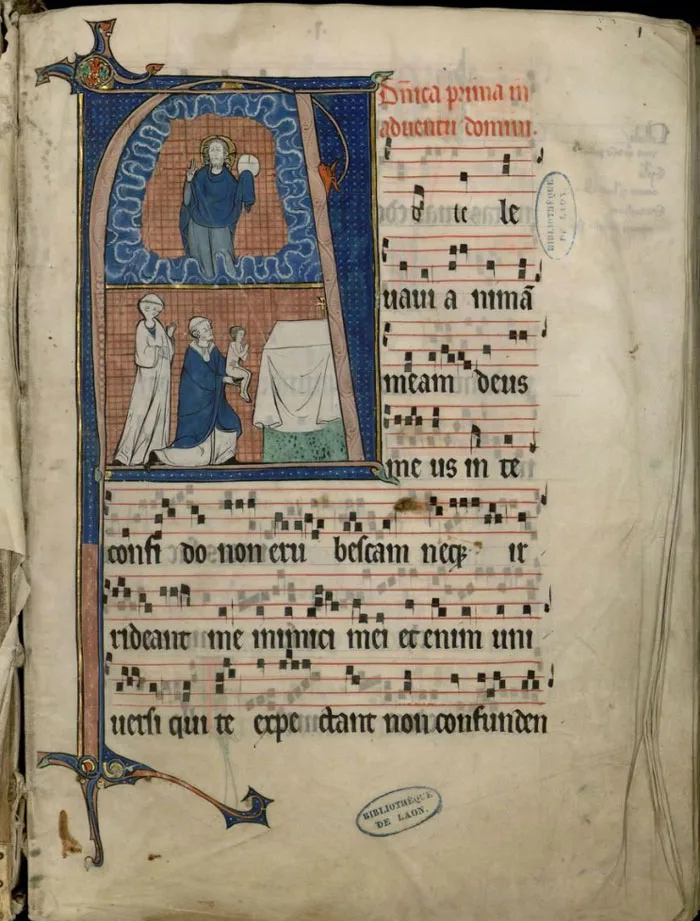 Dñica prima in
aduentu domini.
A
d te le
uaui a nimã
meam deus
me us in te
confi do non eru bescam neqȝ ir
rideant me inimici mei et enim uni
uersi qui te expe ctant non confunden
BIBLIOTHÈQUE
DE LAON.
BIBLIOTHÈQUE
DE LAON.